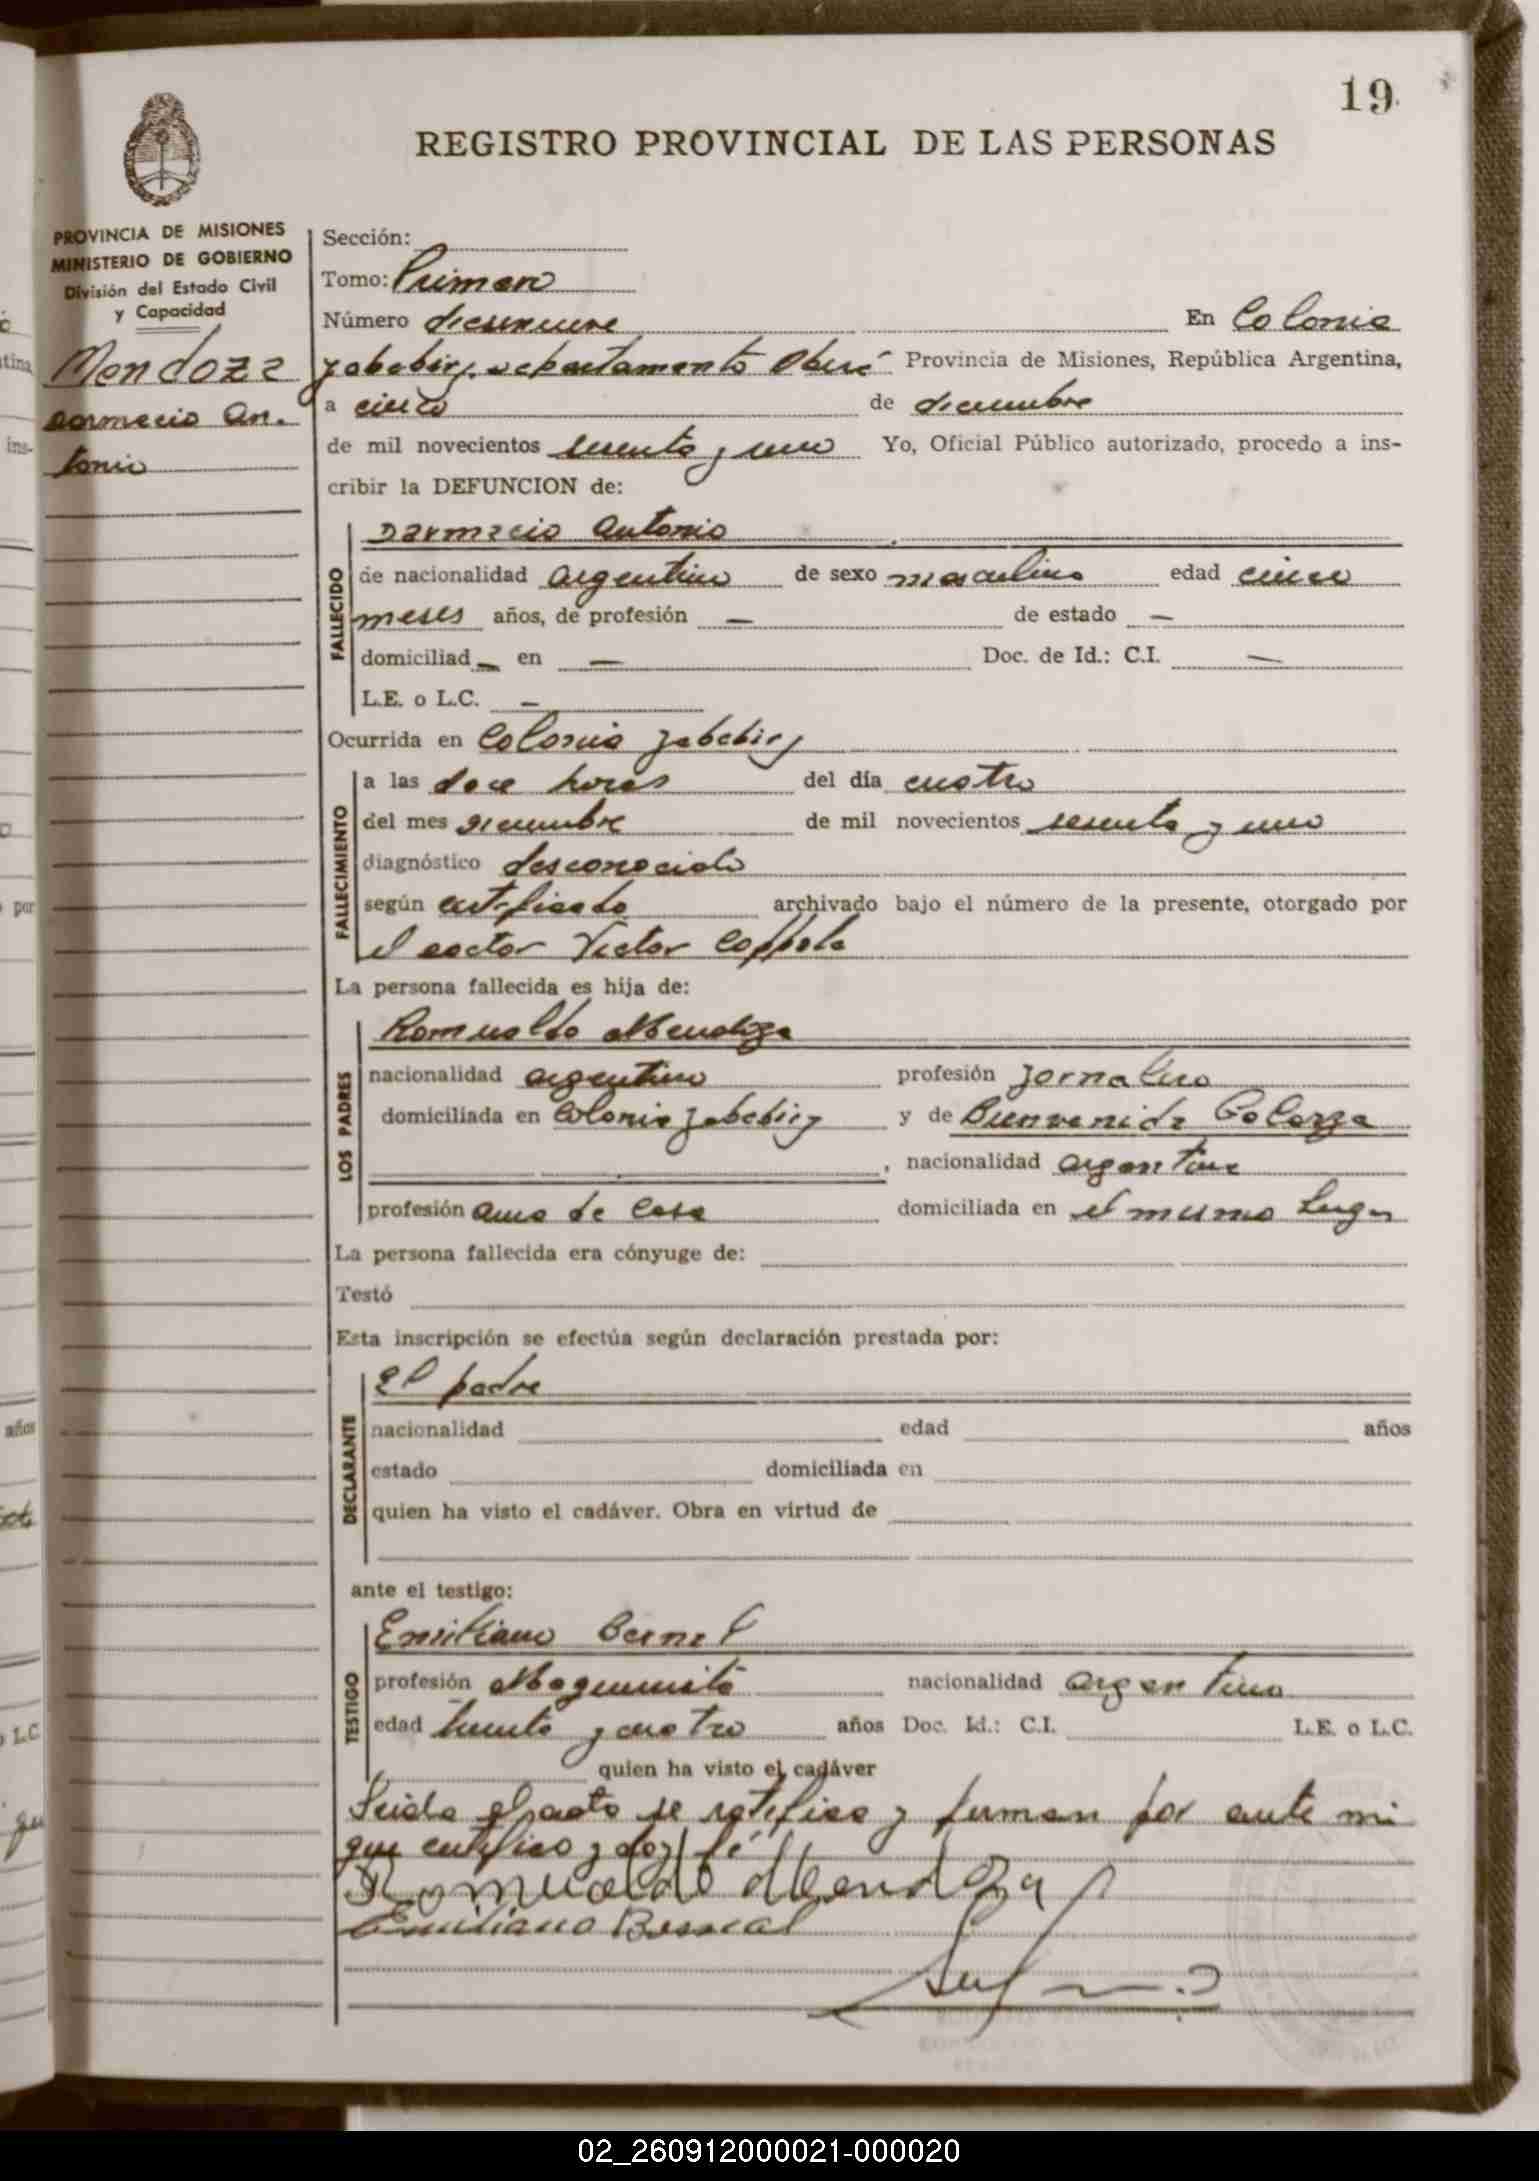 19
REGISTRO PROVINCIAL DE LAS PERSONAS
PROVINCIA DE MISIONES
MINISTERIO DE GOBIERNO
División del Estado Civil
y Capacidad
Mendoza
Darmacio An-
tonio
Sección:
Tomo: Primero
Número diecinueve En Colonia
Yabebiry departamento Oberá Provincia de Misiones, República Argentina,
a cinco de diciembre
de mil novecientos sesenta y uno Yo, Oficial Público autorizado, procedo a ins-
cribir la DEFUNCION de:
FALLECIDO
Darmacio Antonio
de nacionalidad argentino de sexo masculino edad cinco
meses años, de profesión — de estado —
domiciliad — en — Doc. de Id.: C.I. —
L.E. o L.C. —
Ocurrida en Colonia Yabebiry
FALLECIMIENTO
a las doce horas del día cuatro
del mes diciembre de mil novecientos sesenta y uno
diagnóstico desconocido
según certificado archivado bajo el número de la presente, otorgado por
el doctor Victor Coppola
La persona fallecida es hija de:
LOS PADRES
Romualdo Mendoza
nacionalidad argentino profesión jornalero
domiciliada en Colonia Yabebiry y de Bienvenida
, nacionalidad argentina
profesión ama de casa domiciliada en el mismo lugar
La persona fallecida era cónyuge de:
Testó
Esta inscripción se efectúa según declaración prestada por:
DECLARANTE
El padre
nacionalidad edad años
estado domiciliada en
quien ha visto el cadáver. Obra en virtud de
ante el testigo:
TESTIGO
Emiliano
profesión Maquinista nacionalidad argentino
edad treinta y cuatro años Doc. Id.: C.I. L.E. o L.C.
quien ha visto el cadáver
Leida el acta se ratifica y firman por ante mi
que certifico y doy fé
Romualdo Mendoza
Emiliano
02_260912000021-000020